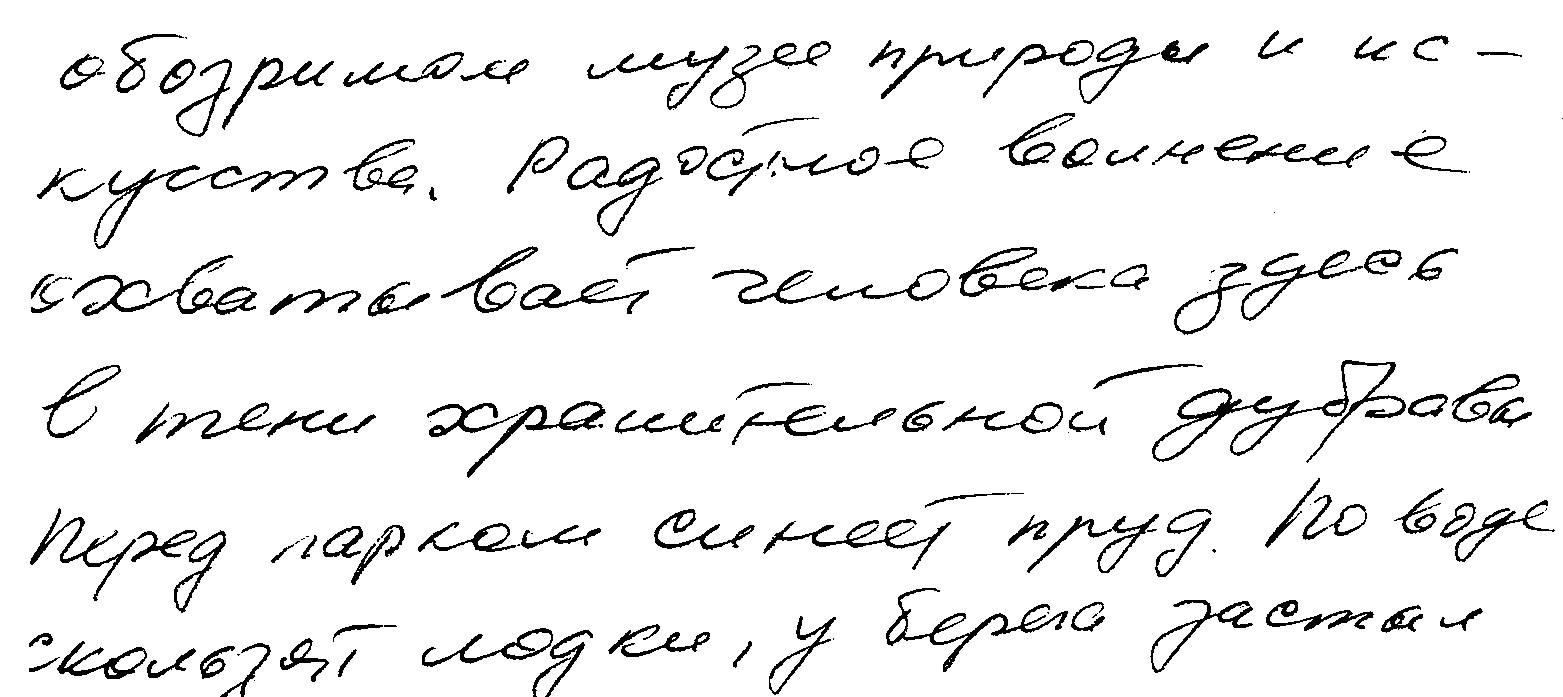 обозримом музее природы и ис-
кусства. Радостное волнение
охватывает человека здесь
в тени хранительной дубравы
Перед парком синеет пруд. По воде
скользят лодки, у берега застыл